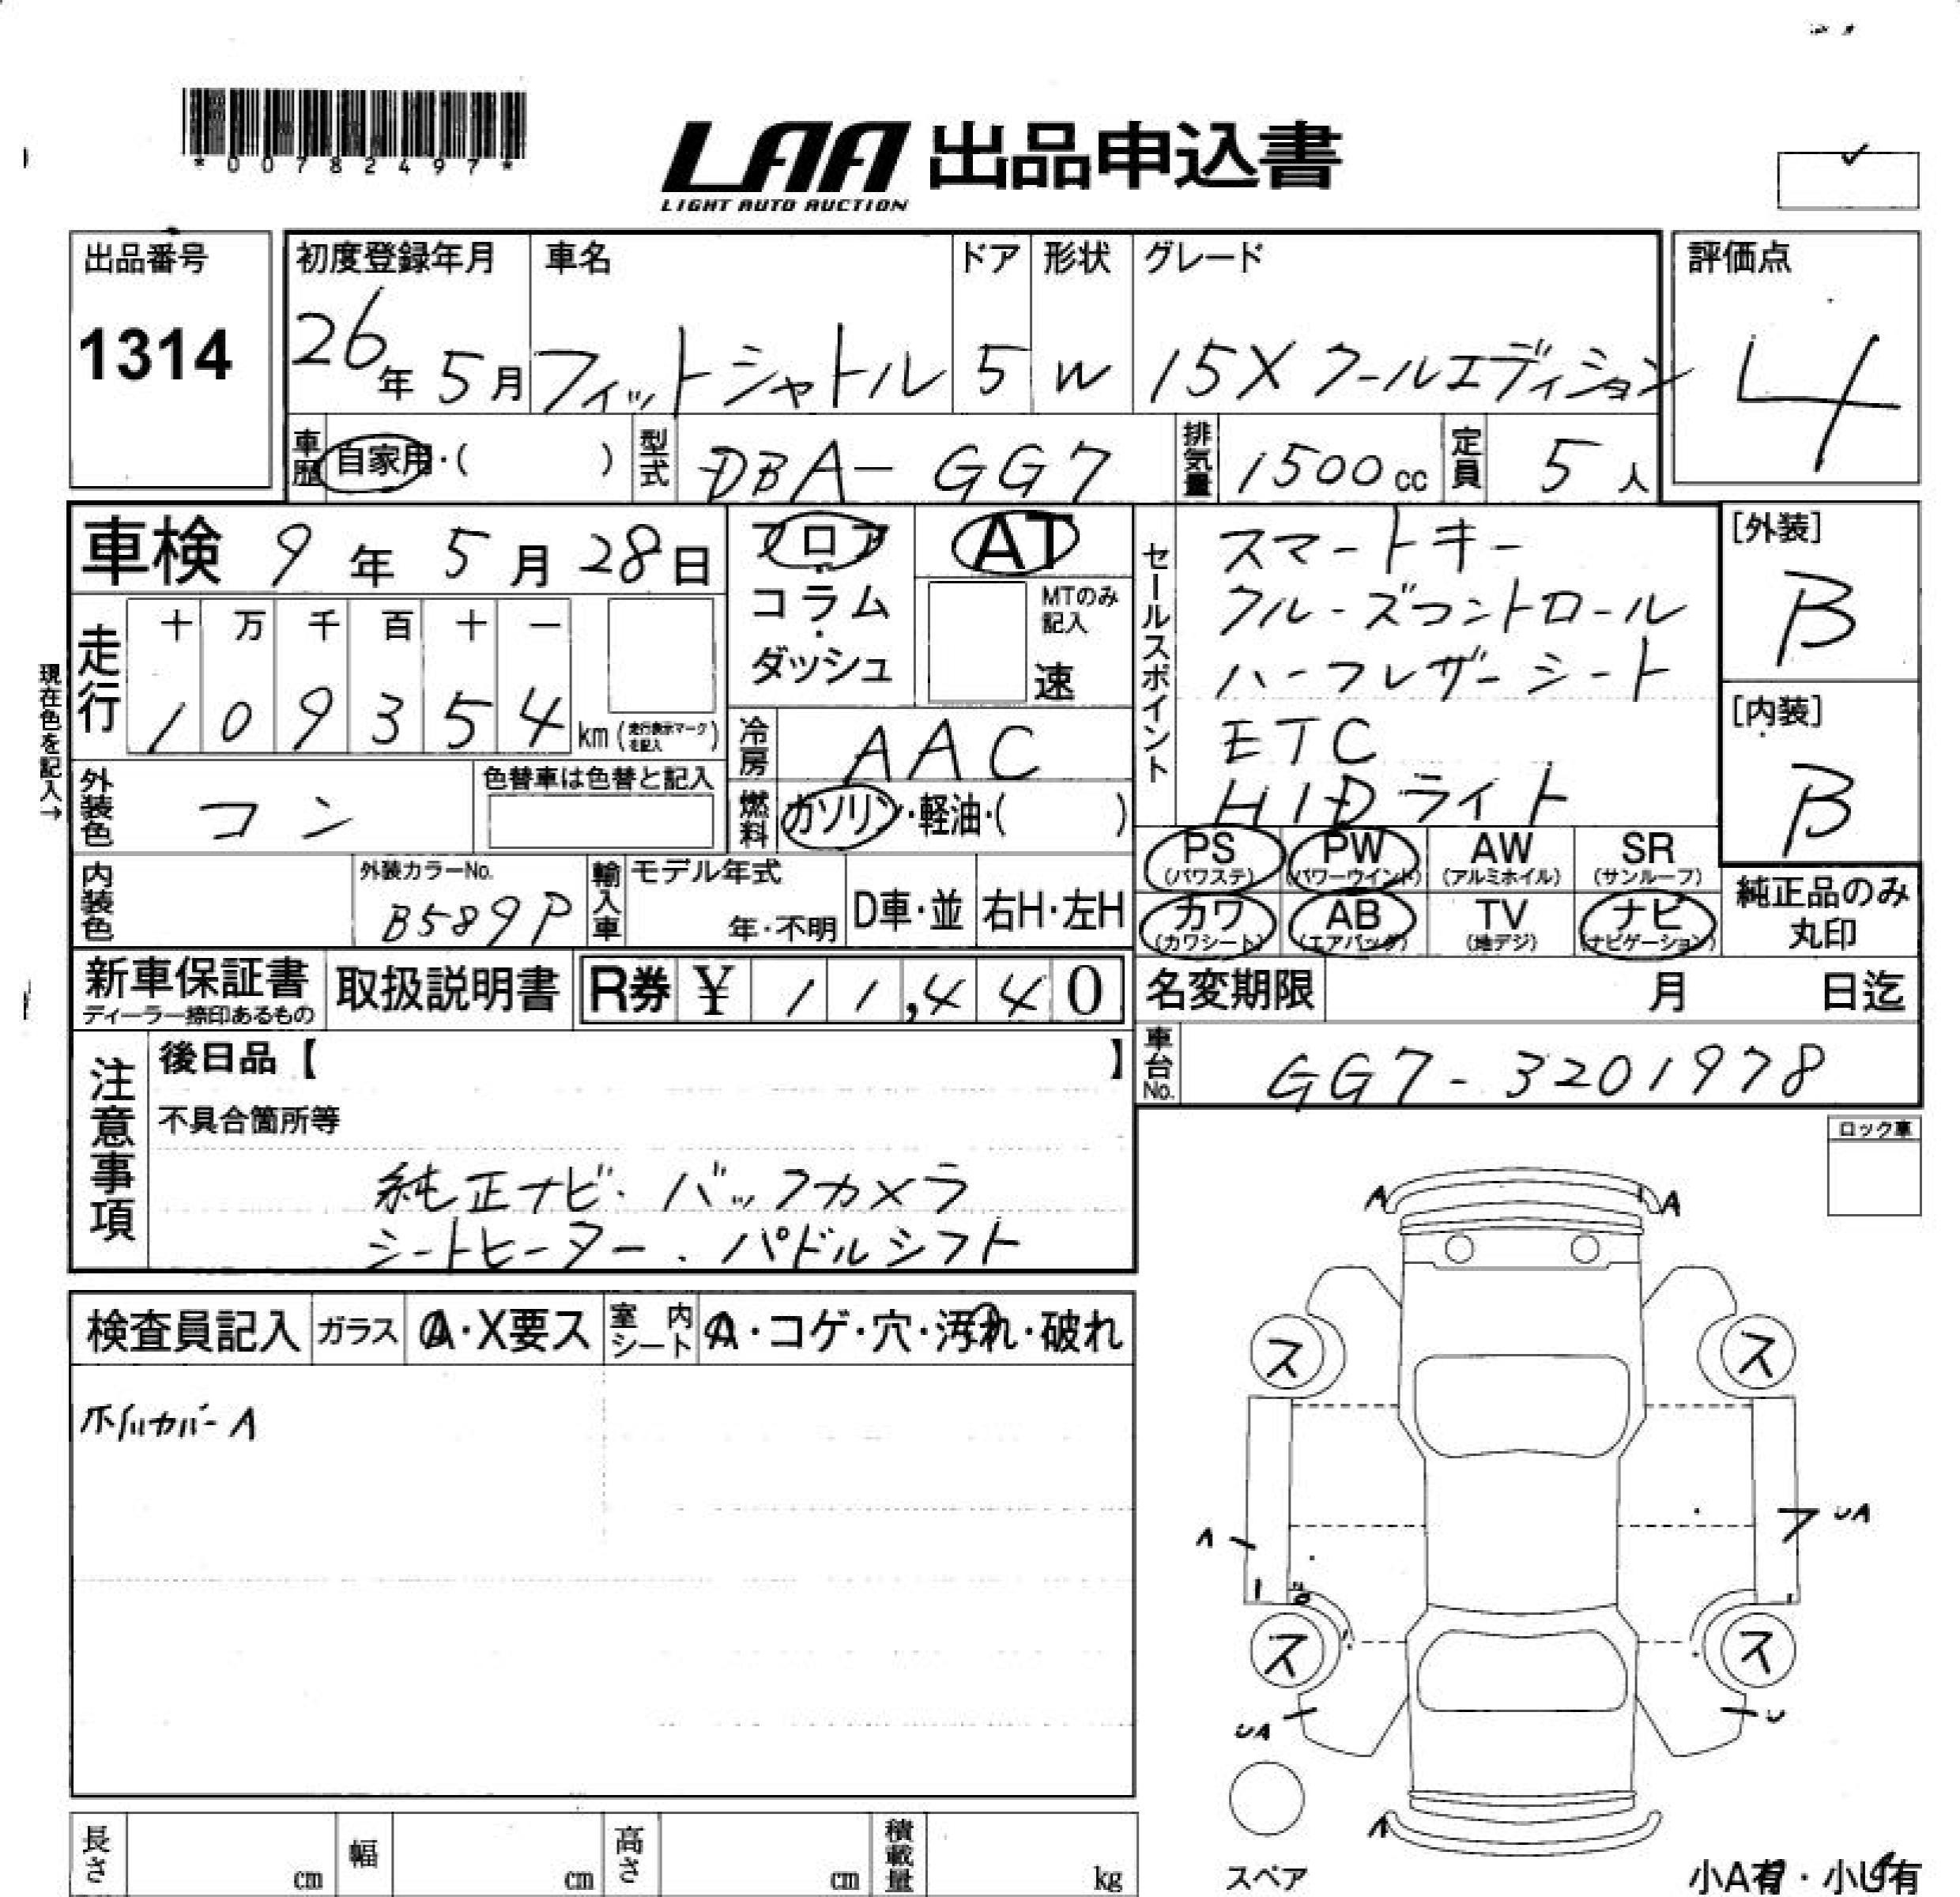 *00782497*
LAA 出品申込書
LIGHT AUTO AUCTION
出品番号
1314
初度登録年月
26年5月
車名
フィットシャトル
ドア
5
形状
W
グレード
15X クールエディション
評価点
4
車歴
自家用・( )
型式
DBA-GG7
排気量
1500cc
定員
5人
車検 9年5月28日
フロア
コラム
・
ダッシュ
AT
MTのみ
記入
速
セールスポイント
スマートキー
クルーズコントロール
ハーフレザーシート
ETC
HIDライト
[外装]
B
[内装]
B
現在色を記入→
走行
十 万 千 百 十 一
1 0 9 3 5 4
km(走行表示マークを記入)
冷房
AAC
外装色
コン
色替車は色替と記入
燃料
ガソリン・軽油・( )
PS
(パワステ)
PW
(パワーウインド)
AW
(アルミホイル)
SR
(サンルーフ)
カワ
(カワシート)
AB
(エアバッグ)
TV
(地デジ)
ナビ
(ナビゲーション)
純正品のみ
丸印
内装色
外装カラーNo.
B589P
輸入車
モデル年式
年・不明
D車・並
右H・左H
新車保証書
ディーラー捺印あるもの
取扱説明書
R券 ¥ 11,440
名変期限 月 日迄
車台No.
GG7-3201978
注意事項
後日品【 】
不具合箇所等
純正ナビ・バックカメラ
シートヒーター・パドルシフト
ロック車
検査員記入
ガラス
A・X要ス
室内
シート
A・コゲ・穴・汚れ・破れ
ホイルカバーA
A A
ス ス
A UA
ス ス
UA U
A
スペア
小A有・小U有
長さ cm
幅 cm
高さ cm
積載量 kg